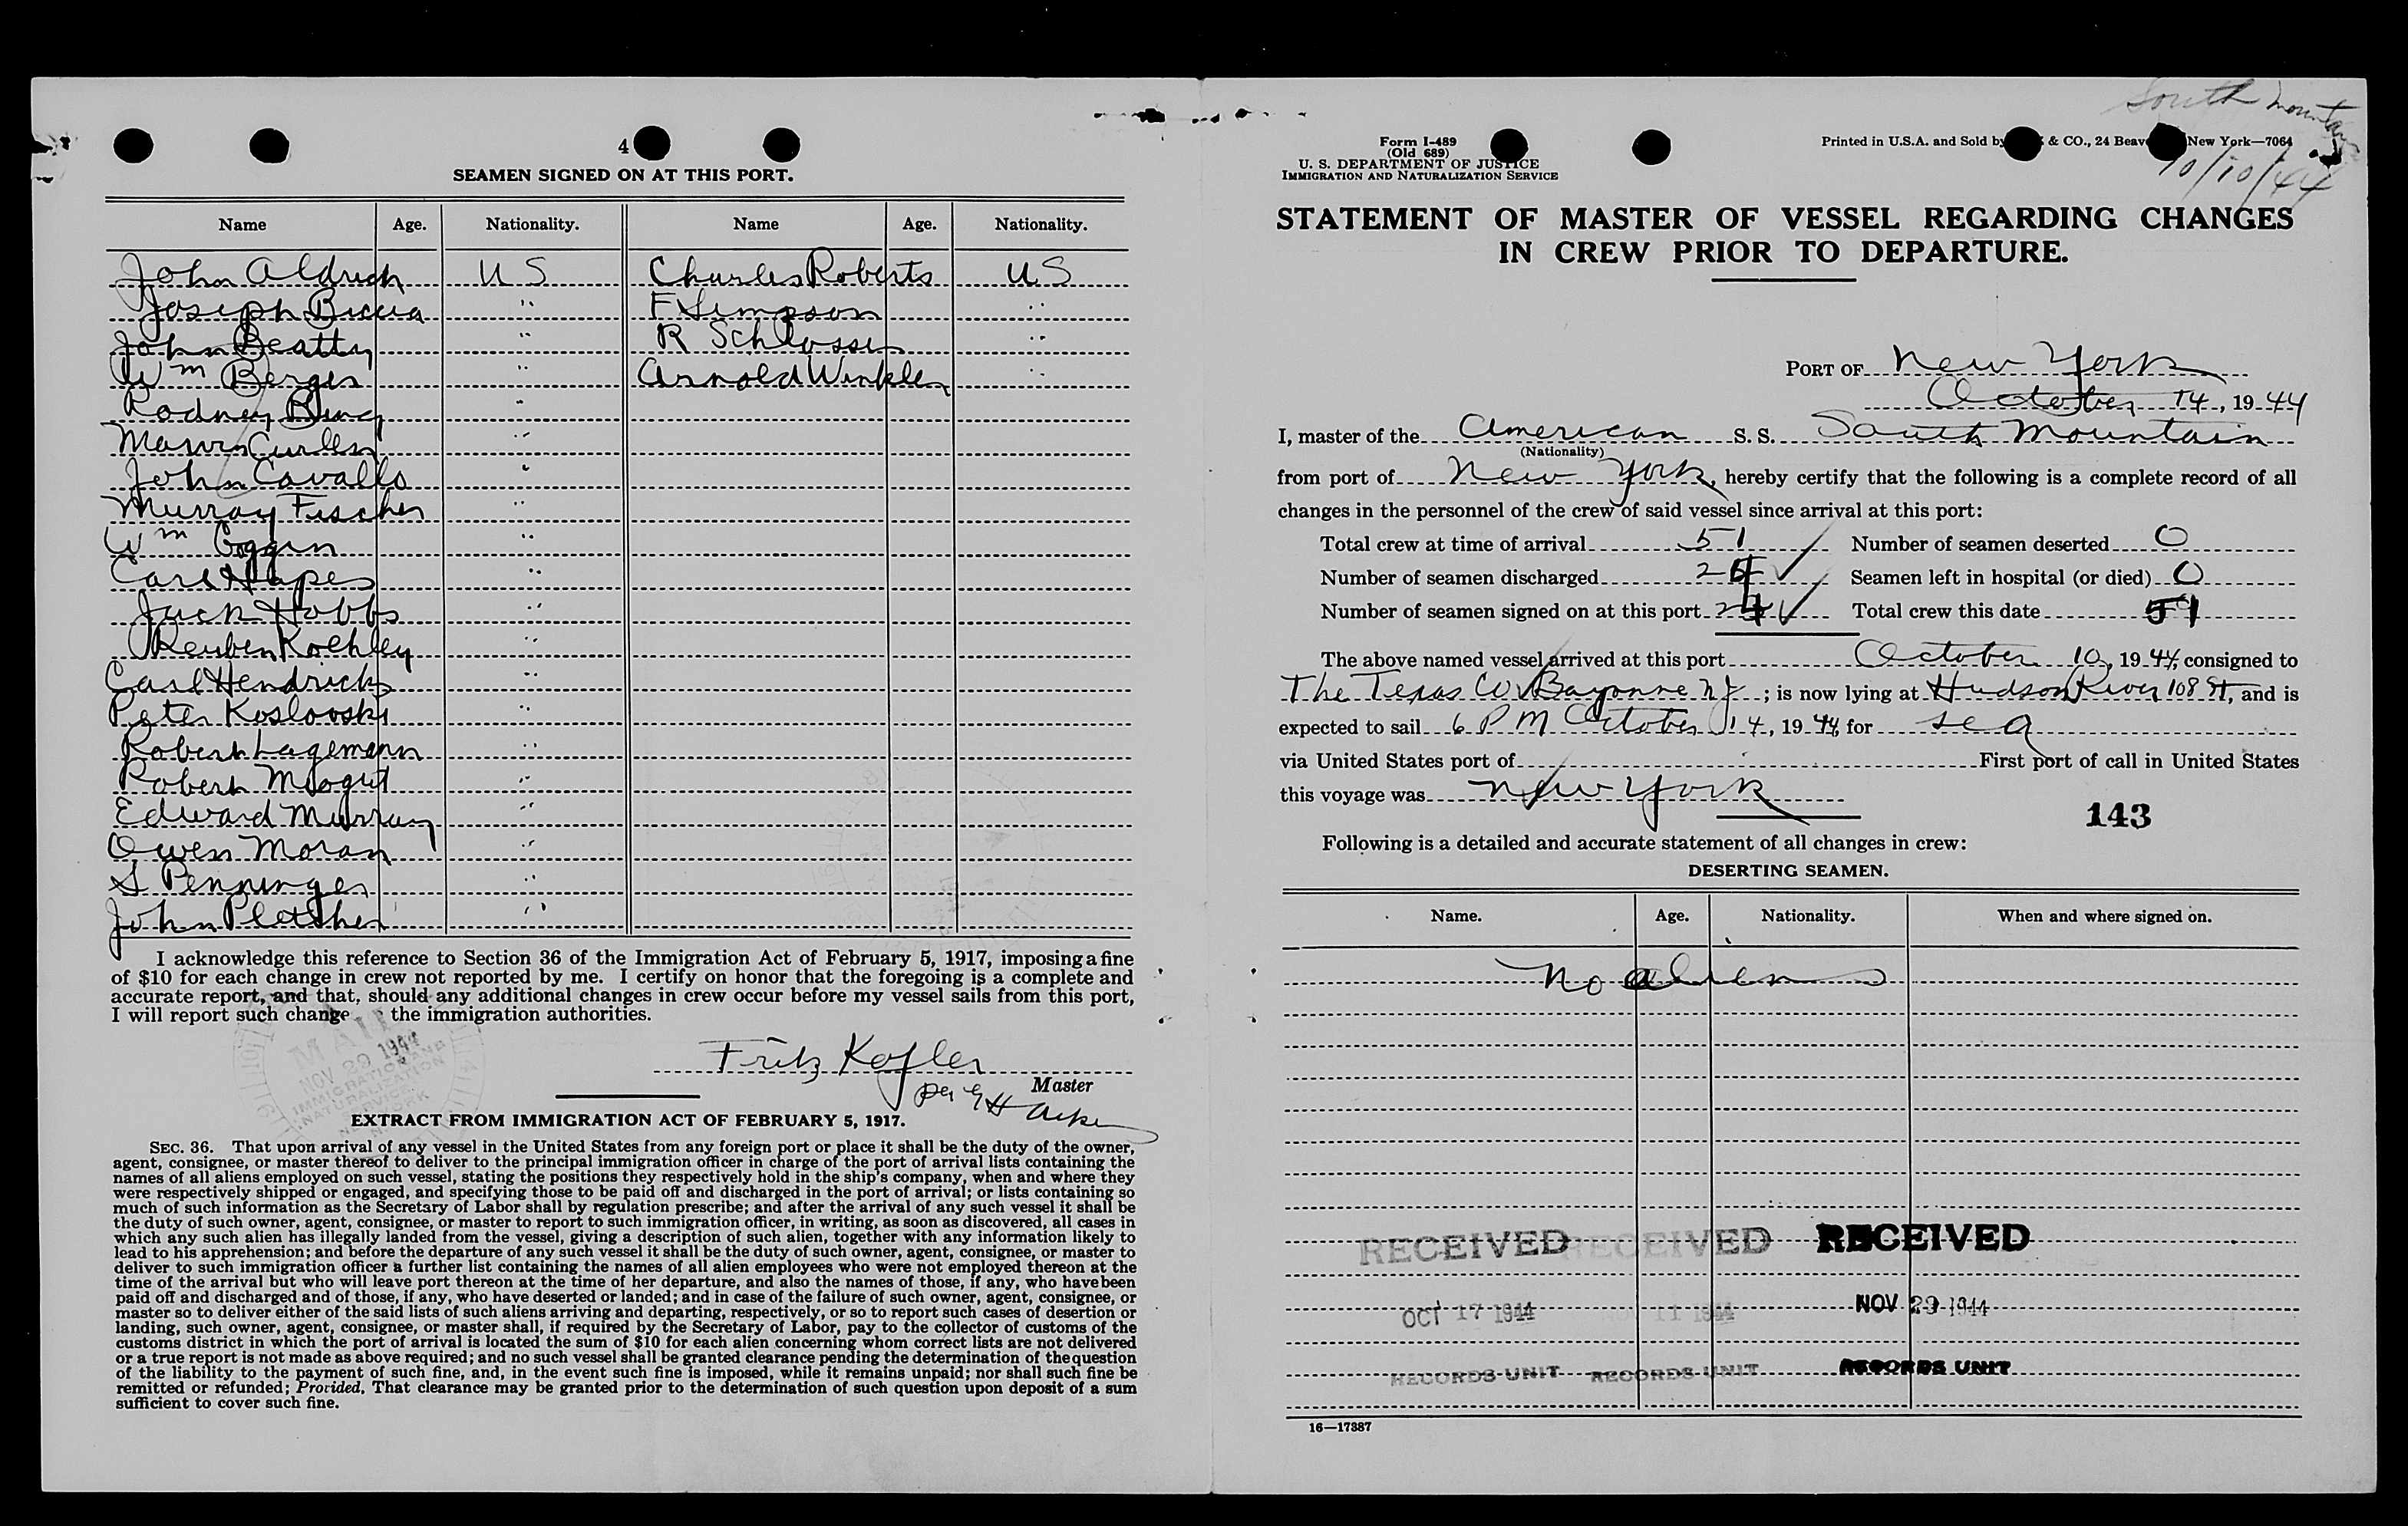 4
SEAMEN SIGNED ON AT THIS PORT.
Name Age. Nationality. Name Age. Nationality.
John Aldrich U S Charles Roberts U S
Joseph Biccia " F Simpson "
John Beatty " R Schlosser "
Wm Berger " Arnold Winkler "
Rodney "
"
John Cavallo "
Murray Fischer "
Wm Goggin "
Earl Hapes "
Jack Hobbs "
Reuben Koehley "
Carl Hendricks "
Peter Koslovski "
Robert Lagemann "
Robert "
Edward Murray "
Owen Moran "
S Penninger "
John Pletcher "
I acknowledge this reference to Section 36 of the Immigration Act of February 5, 1917, imposing a fine
of $10 for each change in crew not reported by me. I certify on honor that the foregoing is a complete and
accurate report, and that, should any additional changes in crew occur before my vessel sails from this port,
I will report such change the immigration authorities.
MAIL
NOV 29 1944
IMMIGRATION AND
NATURALIZATION
SERVICE
Fritz Kofler
Master
per G H
EXTRACT FROM IMMIGRATION ACT OF FEBRUARY 5, 1917.
SEC. 36. That upon arrival of any vessel in the United States from any foreign port or place it shall be the duty of the owner,
agent, consignee, or master thereof to deliver to the principal immigration officer in charge of the port of arrival lists containing the
names of all aliens employed on such vessel, stating the positions they respectively hold in the ship's company, when and where they
were respectively shipped or engaged, and specifying those to be paid off and discharged in the port of arrival; or lists containing so
much of such information as the Secretary of Labor shall by regulation prescribe; and after the arrival of any such vessel it shall be
the duty of such owner, agent, consignee, or master to report to such immigration officer, in writing, as soon as discovered, all cases in
which any such alien has illegally landed from the vessel, giving a description of such alien, together with any information likely to
lead to his apprehension; and before the departure of any such vessel it shall be the duty of such owner, agent, consignee, or master to
deliver to such immigration officer a further list containing the names of all alien employees who were not employed thereon at the
time of the arrival but who will leave port thereon at the time of her departure, and also the names of those, if any, who have been
paid off and discharged and of those, if any, who have deserted or landed; and in case of the failure of such owner, agent, consignee, or
master so to deliver either of the said lists of such aliens arriving and departing, respectively, or so to report such cases of desertion or
landing, such owner, agent, consignee, or master shall, if required by the Secretary of Labor, pay to the collector of customs of the
customs district in which the port of arrival is located the sum of $10 for each alien concerning whom correct lists are not delivered
or a true report is not made as above required; and no such vessel shall be granted clearance pending the determination of the question
of the liability to the payment of such fine, and, in the event such fine is imposed, while it remains unpaid; nor shall such fine be
remitted or refunded; Provided, That clearance may be granted prior to the determination of such question upon deposit of a sum
sufficient to cover such fine.
South Mountain
10/10/44
Form I-489
(Old 689)
U. S. DEPARTMENT OF JUSTICE
IMMIGRATION AND NATURALIZATION SERVICE
Printed in U.S.A. and Sold by & CO., 24 Beav New York—7064
STATEMENT OF MASTER OF VESSEL REGARDING CHANGES
IN CREW PRIOR TO DEPARTURE.
PORT OF New York
October 14, 1944
I, master of the American S. S. South Mountain
(Nationality)
from port of New York, hereby certify that the following is a complete record of all
changes in the personnel of the crew of said vessel since arrival at this port:
Total crew at time of arrival 51 Number of seamen deserted 0
Number of seamen discharged 24 Seamen left in hospital (or died) 0
Number of seamen signed on at this port 24 Total crew this date 51
The above named vessel arrived at this port October 10, 1944, consigned to
The Texas Co Bayonne N J; is now lying at Hudson River 108 St, and is
expected to sail 6 P M October 14, 1944, for sea
via United States port of First port of call in United States
this voyage was New York
143
Following is a detailed and accurate statement of all changes in crew:
DESERTING SEAMEN.
Name. Age. Nationality. When and where signed on.
No aliens
RECEIVED RECEIVED RECEIVED
OCT 17 1944 11 1944 NOV 29 1944
RECORDS UNIT RECORDS UNIT RECORDS UNIT
16—17387